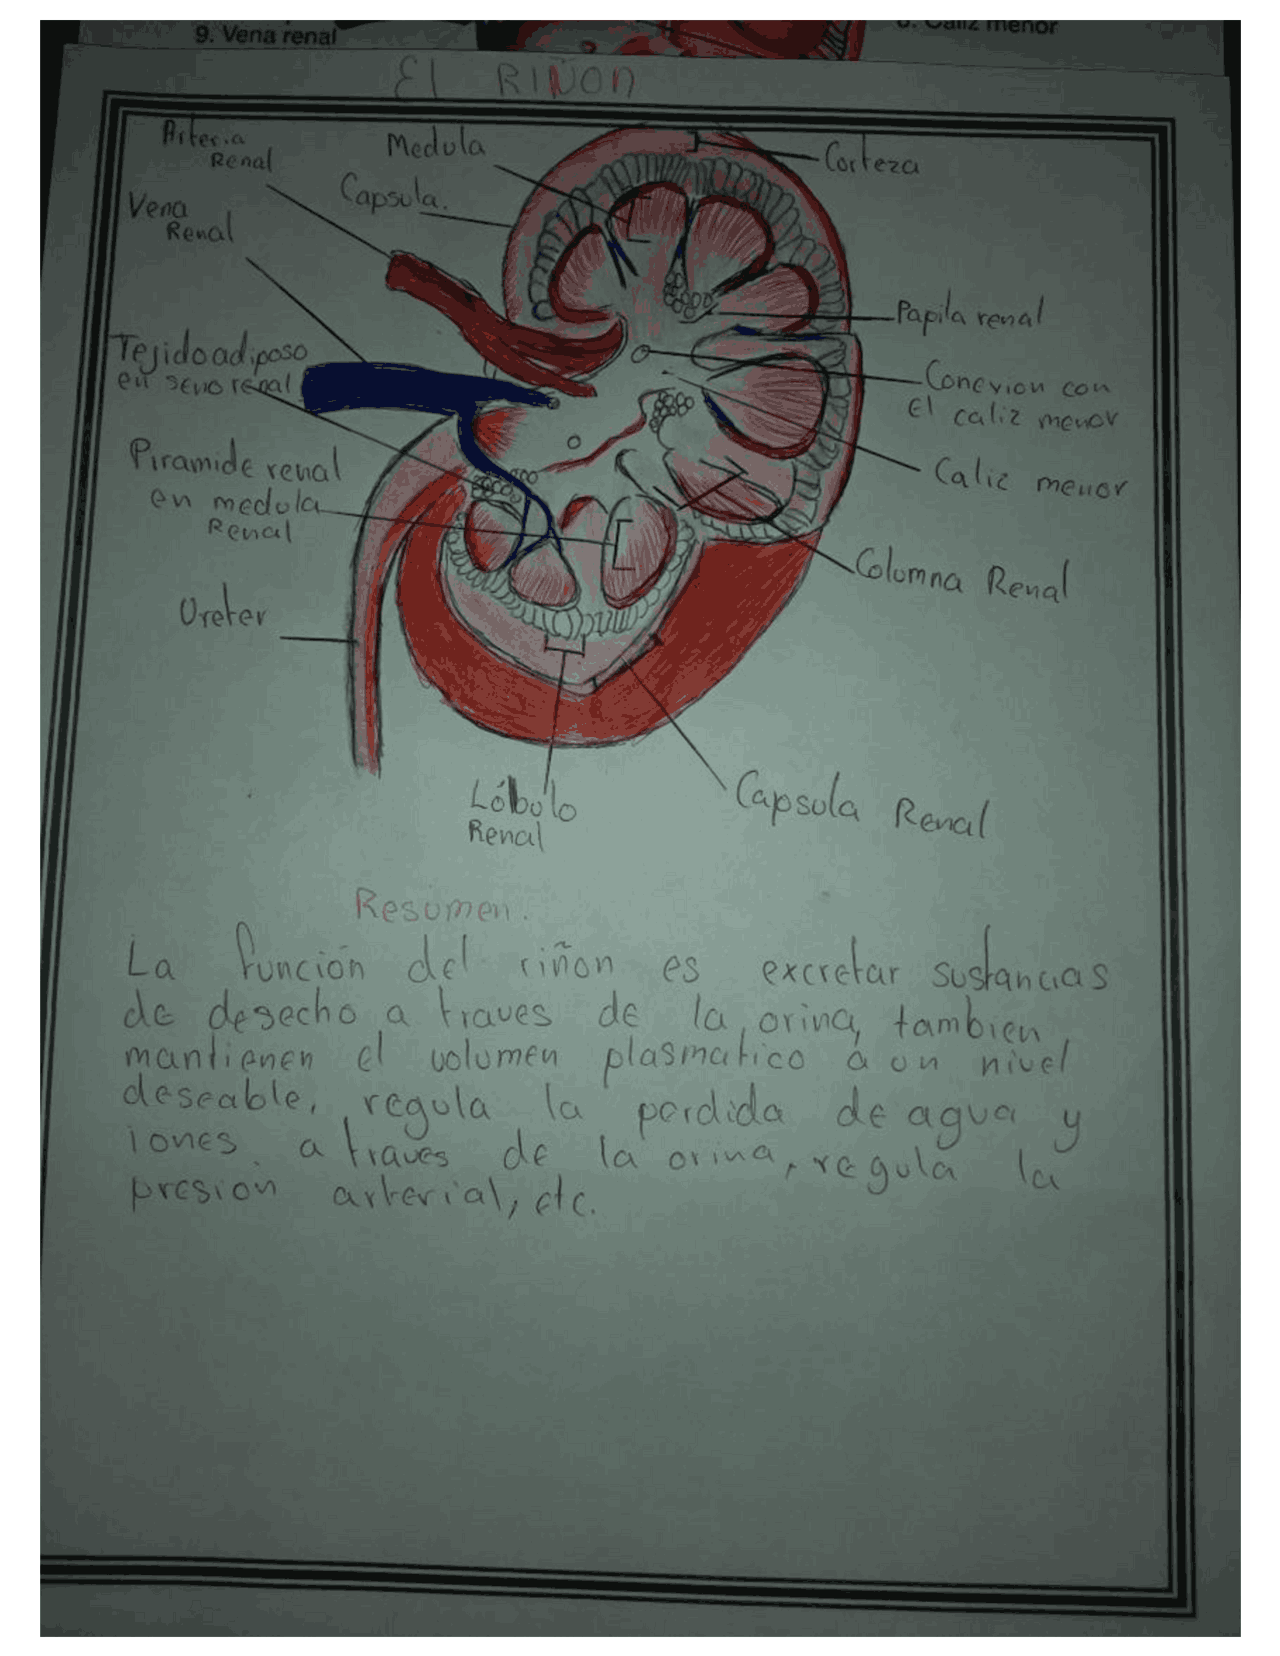 9. Vena renal
Caliz menor
El RIÑON
Arteria
Renal
Medula
Corteza
Capsula.
Vena
Renal
Papila renal
Tejido adiposo
en seno renal
Conexion con
El caliz menor
Piramide renal
en medula
Renal
Caliz menor
Columna Renal
Ureter
Lóbulo
Renal
Capsula Renal
Resumen.
La función del riñon es excretar sustancias
de desecho a traves de la orina, tambien
mantienen el volumen plasmatico a un nivel
deseable, regula la perdida de agua y
iones a traves de la orina, regula la
presion arterial, etc.